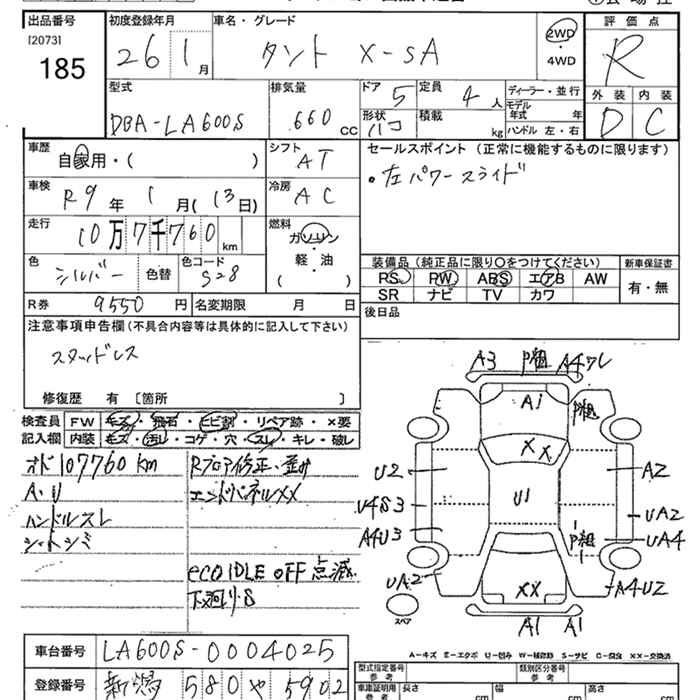 出品番号 初度登録年月 車名・グレード 評価点
[2073] 185
26 1月 タント X-SA 2WD・4WD R
型式 排気量 ドア 定員 ディーラー・並行 外装 内装
DBA-LA600S 660 CC 5 4人 モデル年式 年 D C
形状 ハコ 積載 kg ハンドル 左・右
車歴 シフト セールスポイント(正常に機能するものに限ります)
自家用・( ) AT
・左パワースライド
車検 冷房
R9年 1月(13日) AC
走行 燃料
10万7千760km ガソリン・軽・油 ( )
装備品(純正品に限り○をつけてください) 新車保証書
色 色コード PS PW ABS エアB AW 有・無
シルバー 色替 S28 SR ナビ TV カワ
R券 9550円 名変期限 月 日 後日品
注意事項申告欄(不具合内容等は具体的に記入して下さい)
スタッドレス
修復歴 有〔箇所 〕
検査員 FW キズ・飛石・ヒビ割・リペア跡・×要
記入欄 内装 キズ・汚レ・コゲ・穴・スレ・キレ・破レ
オド107760km Rフロア修正・歪み
A.U エンドパネルXX
ハンドルスレ
シートシミ
eco IDLE OFF 点滅
下廻りS
A3 P組 A4ワレ
A1 P組
XX
U2 U1 A2
U4S3 UA2
A4U3 P組 UA4
UA2 XX A4U2
スペア A1 A1
A-キズ E-エクボ U-凹み W-補修跡 S-サビ C-腐食 XX-交換済
車台番号 LA600S-0004025
登録番号 新潟 580 や 5902
型式指定番号 参考 類別区分番号 参考
車庫証明用 参考 長さ cm 幅 cm 高さ cm